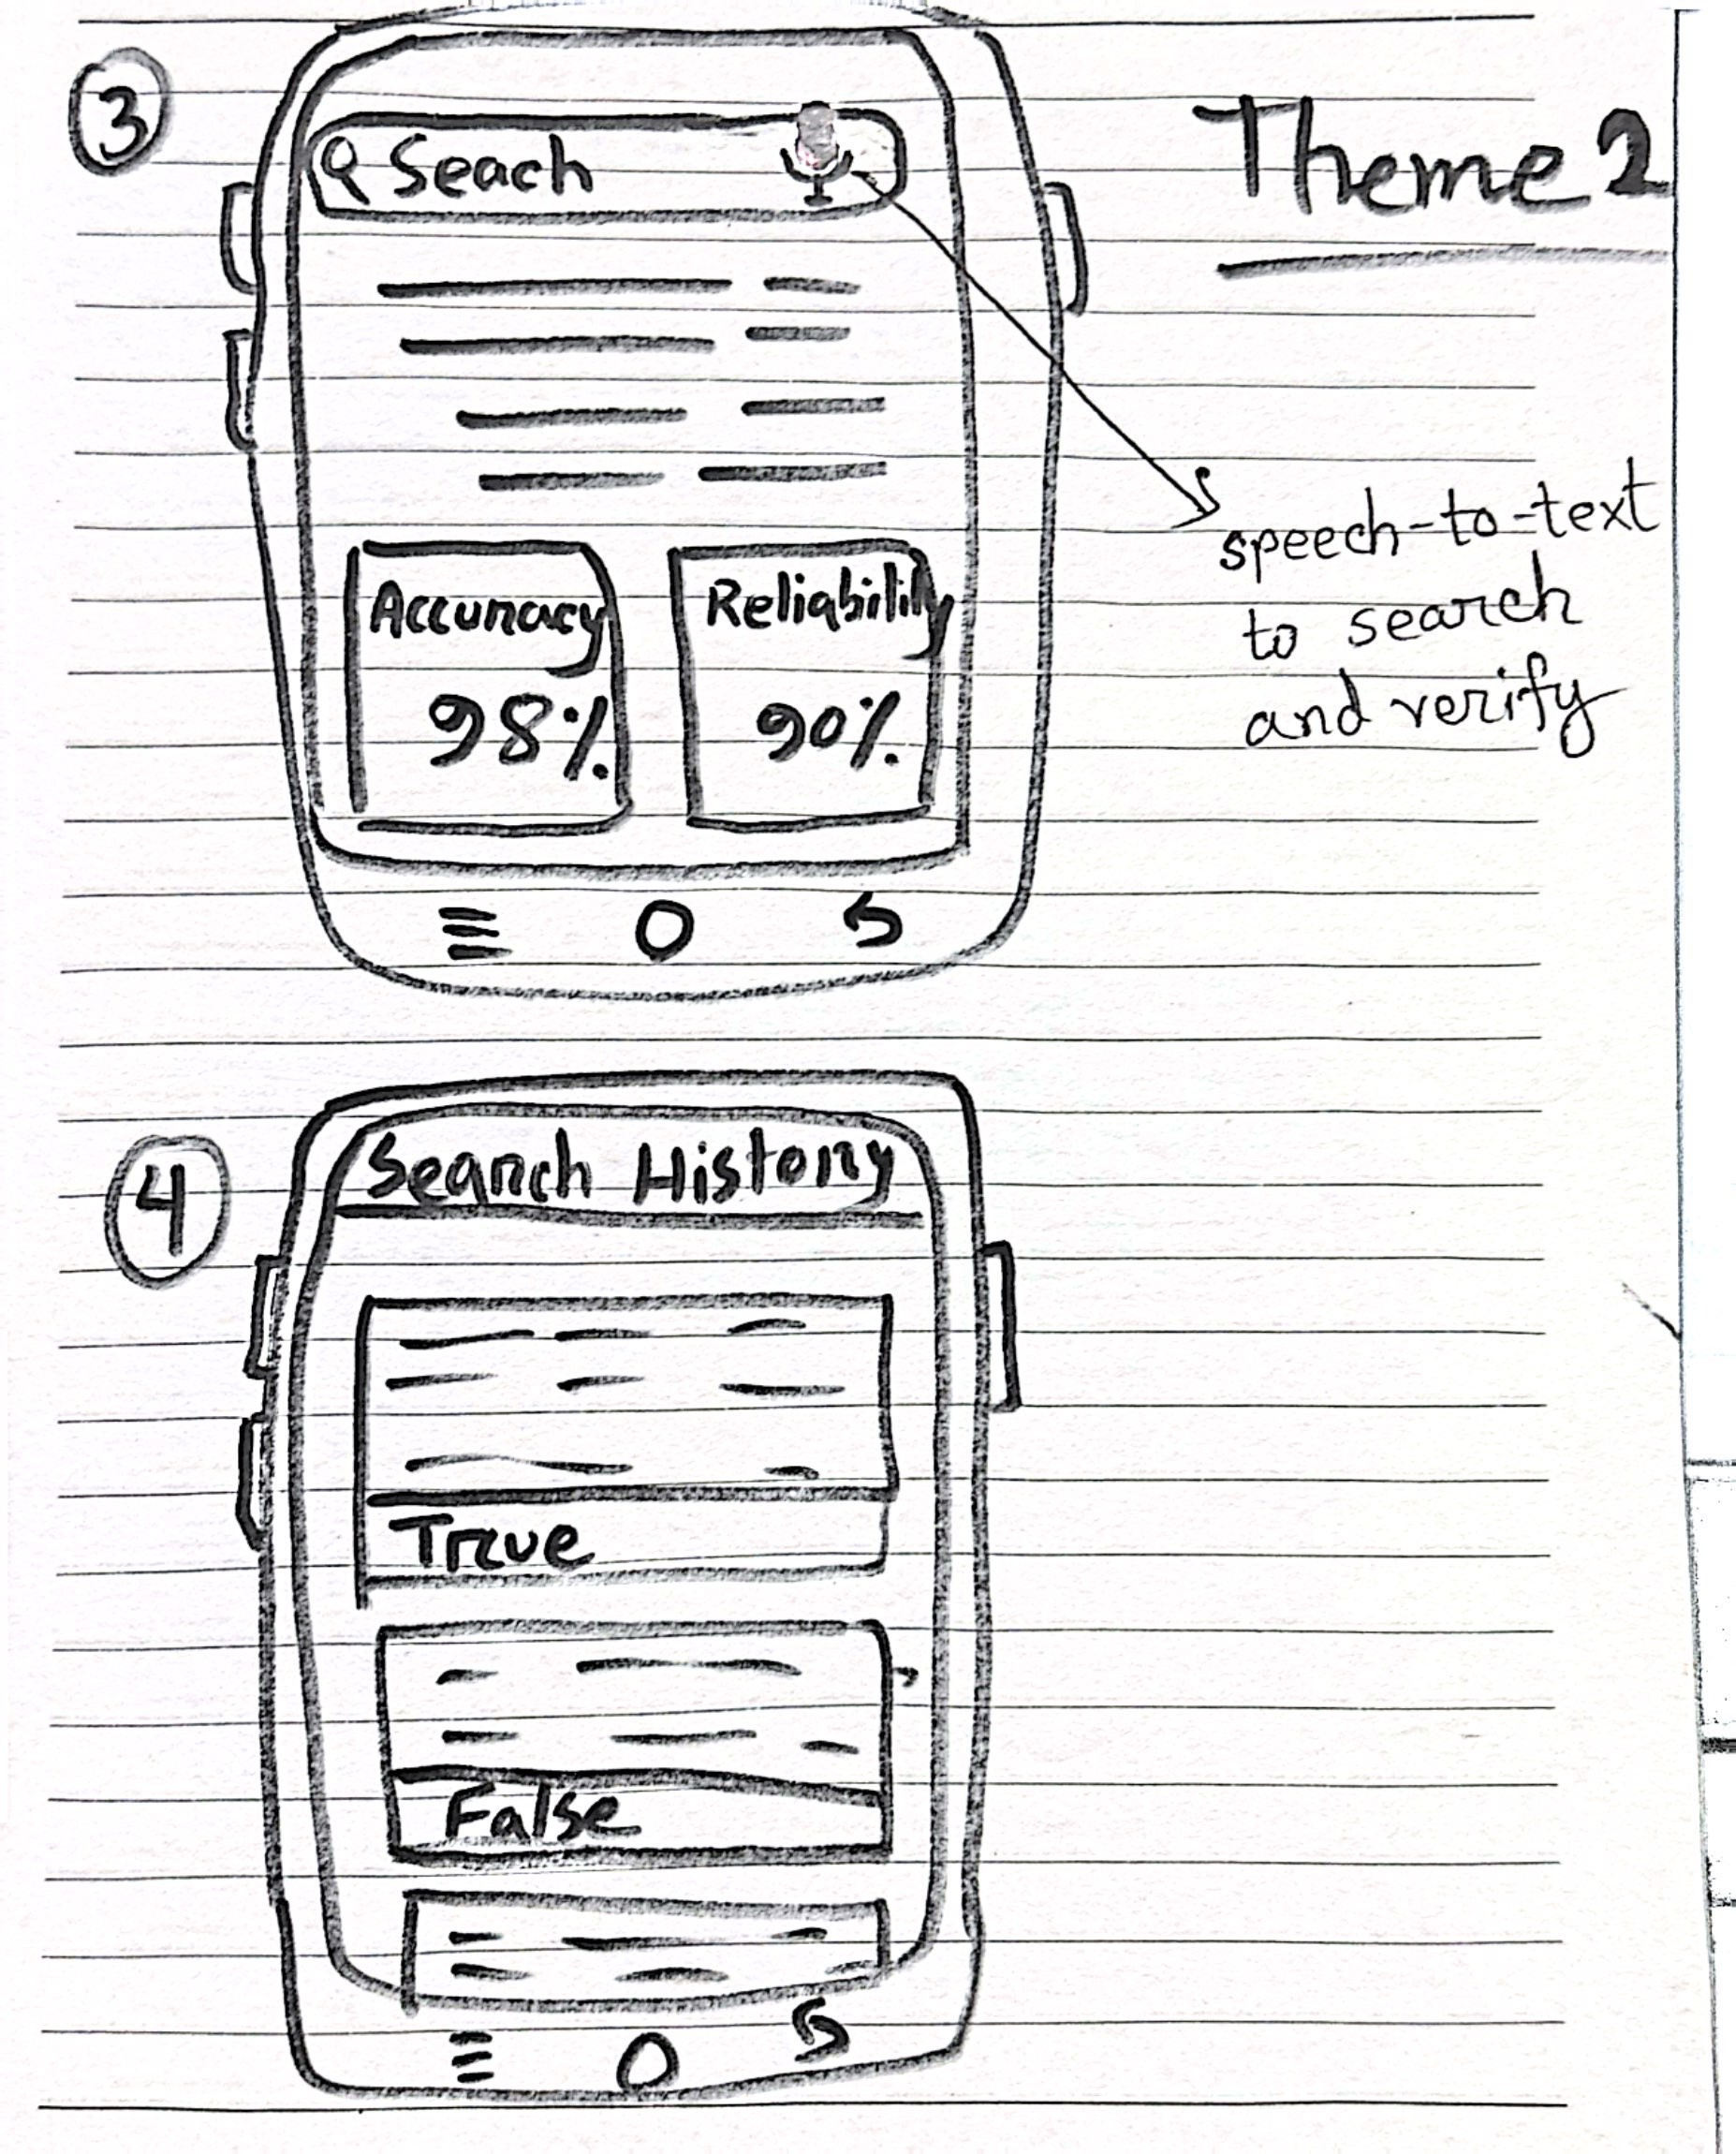 3
Theme 2
Seach
speech-to-text
to search
and verify
Accuracy
98%
Reliability
90%
4
Search History
True
False